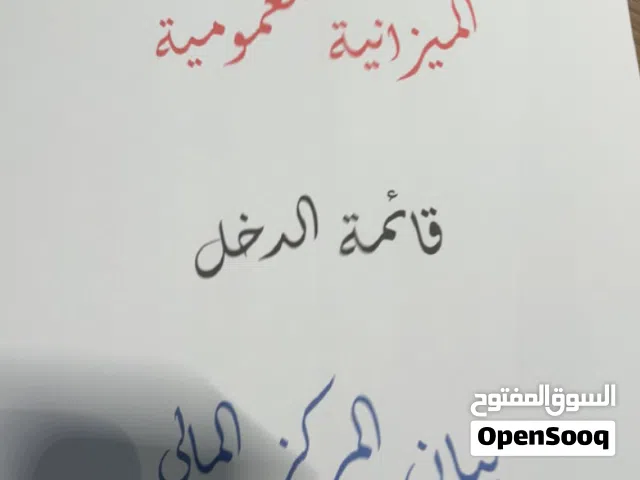 الميزانية العمومية
قائمة الدخل
بيان المركز المالي
السوق المفتوح
OpenSooq